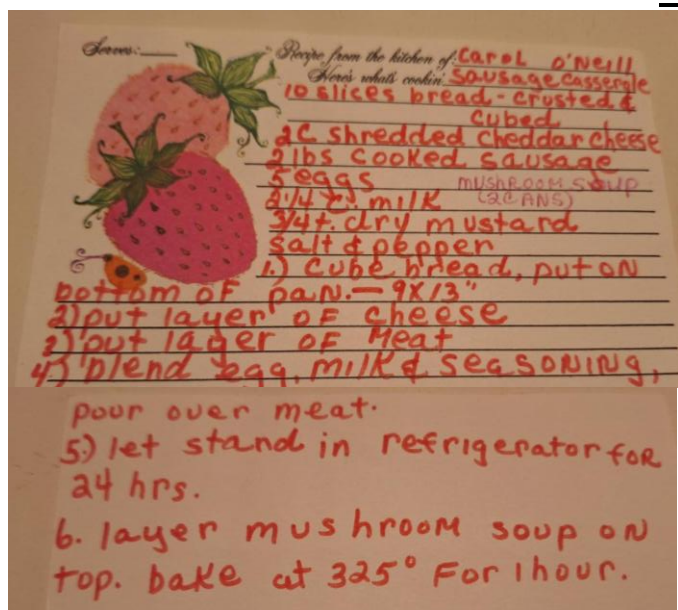 Serves:
Recipe from the kitchen of: Carol O'Neill
Here's what's cookin': Sausage Casserole
10 slices bread - crusted &
cubed
2C shredded cheddar cheese
2 lbs cooked sausage
5 eggs
mushroom soup
2 1/4 c. milk
(2 CANS)
3/4 t. dry mustard
salt & pepper
1.) Cube bread, put on
bottom of pan. - 9x13"
2) put layer of cheese
3) put layer of meat
4) blend egg, milk & seasoning,
pour over meat.
5.) let stand in refrigerator for
24 hrs.
6. layer mushroom soup on
top. bake at 325° for 1 hour.